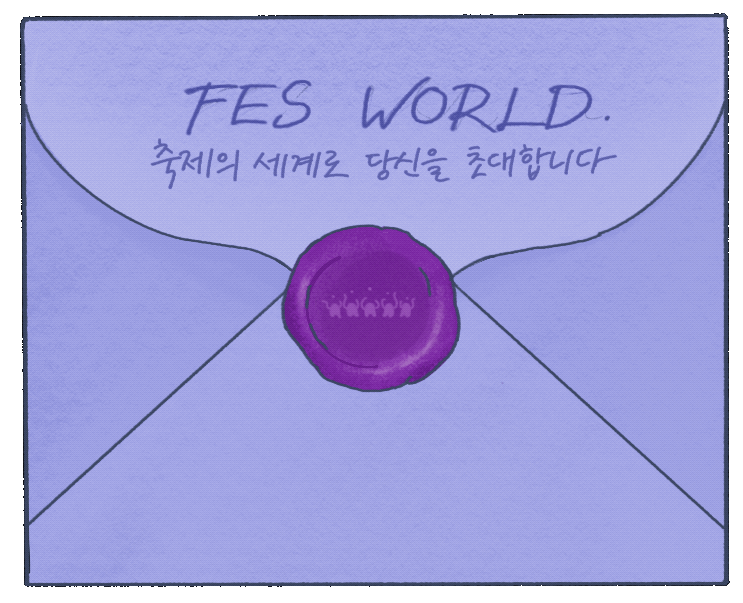 FES WORLD.
축제의 세계로 당신을 초대합니다